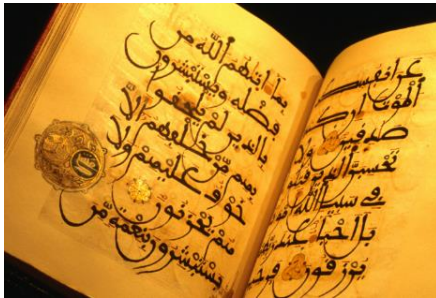 عن أنفسكم
الموت إن
صدقين
تحسبن الذين
في سبيل الله
بل أحياء عند
يرزقون فرحين
بما ءاتىهم الله من
فضله ويستبشرون
بالذين لم يلحقوا
بهم من خلفهم ألا
خوف عليهم ولا
هم يحزنون
يستبشرون بنعمة من